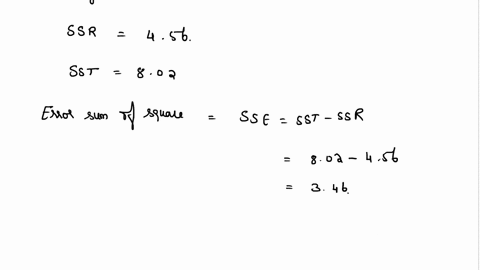 SSR = 4.56.
SST = 8.02
Error sum of square = SSE = SST - SSR
= 8.02 - 4.56
= 3.46.